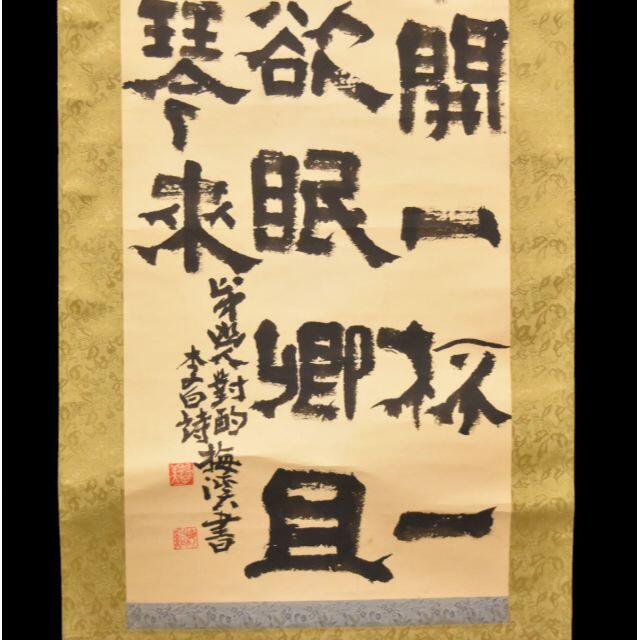 開一杯一
欲眠卿且
琴來
幽人對酌梅溪書
李白詩